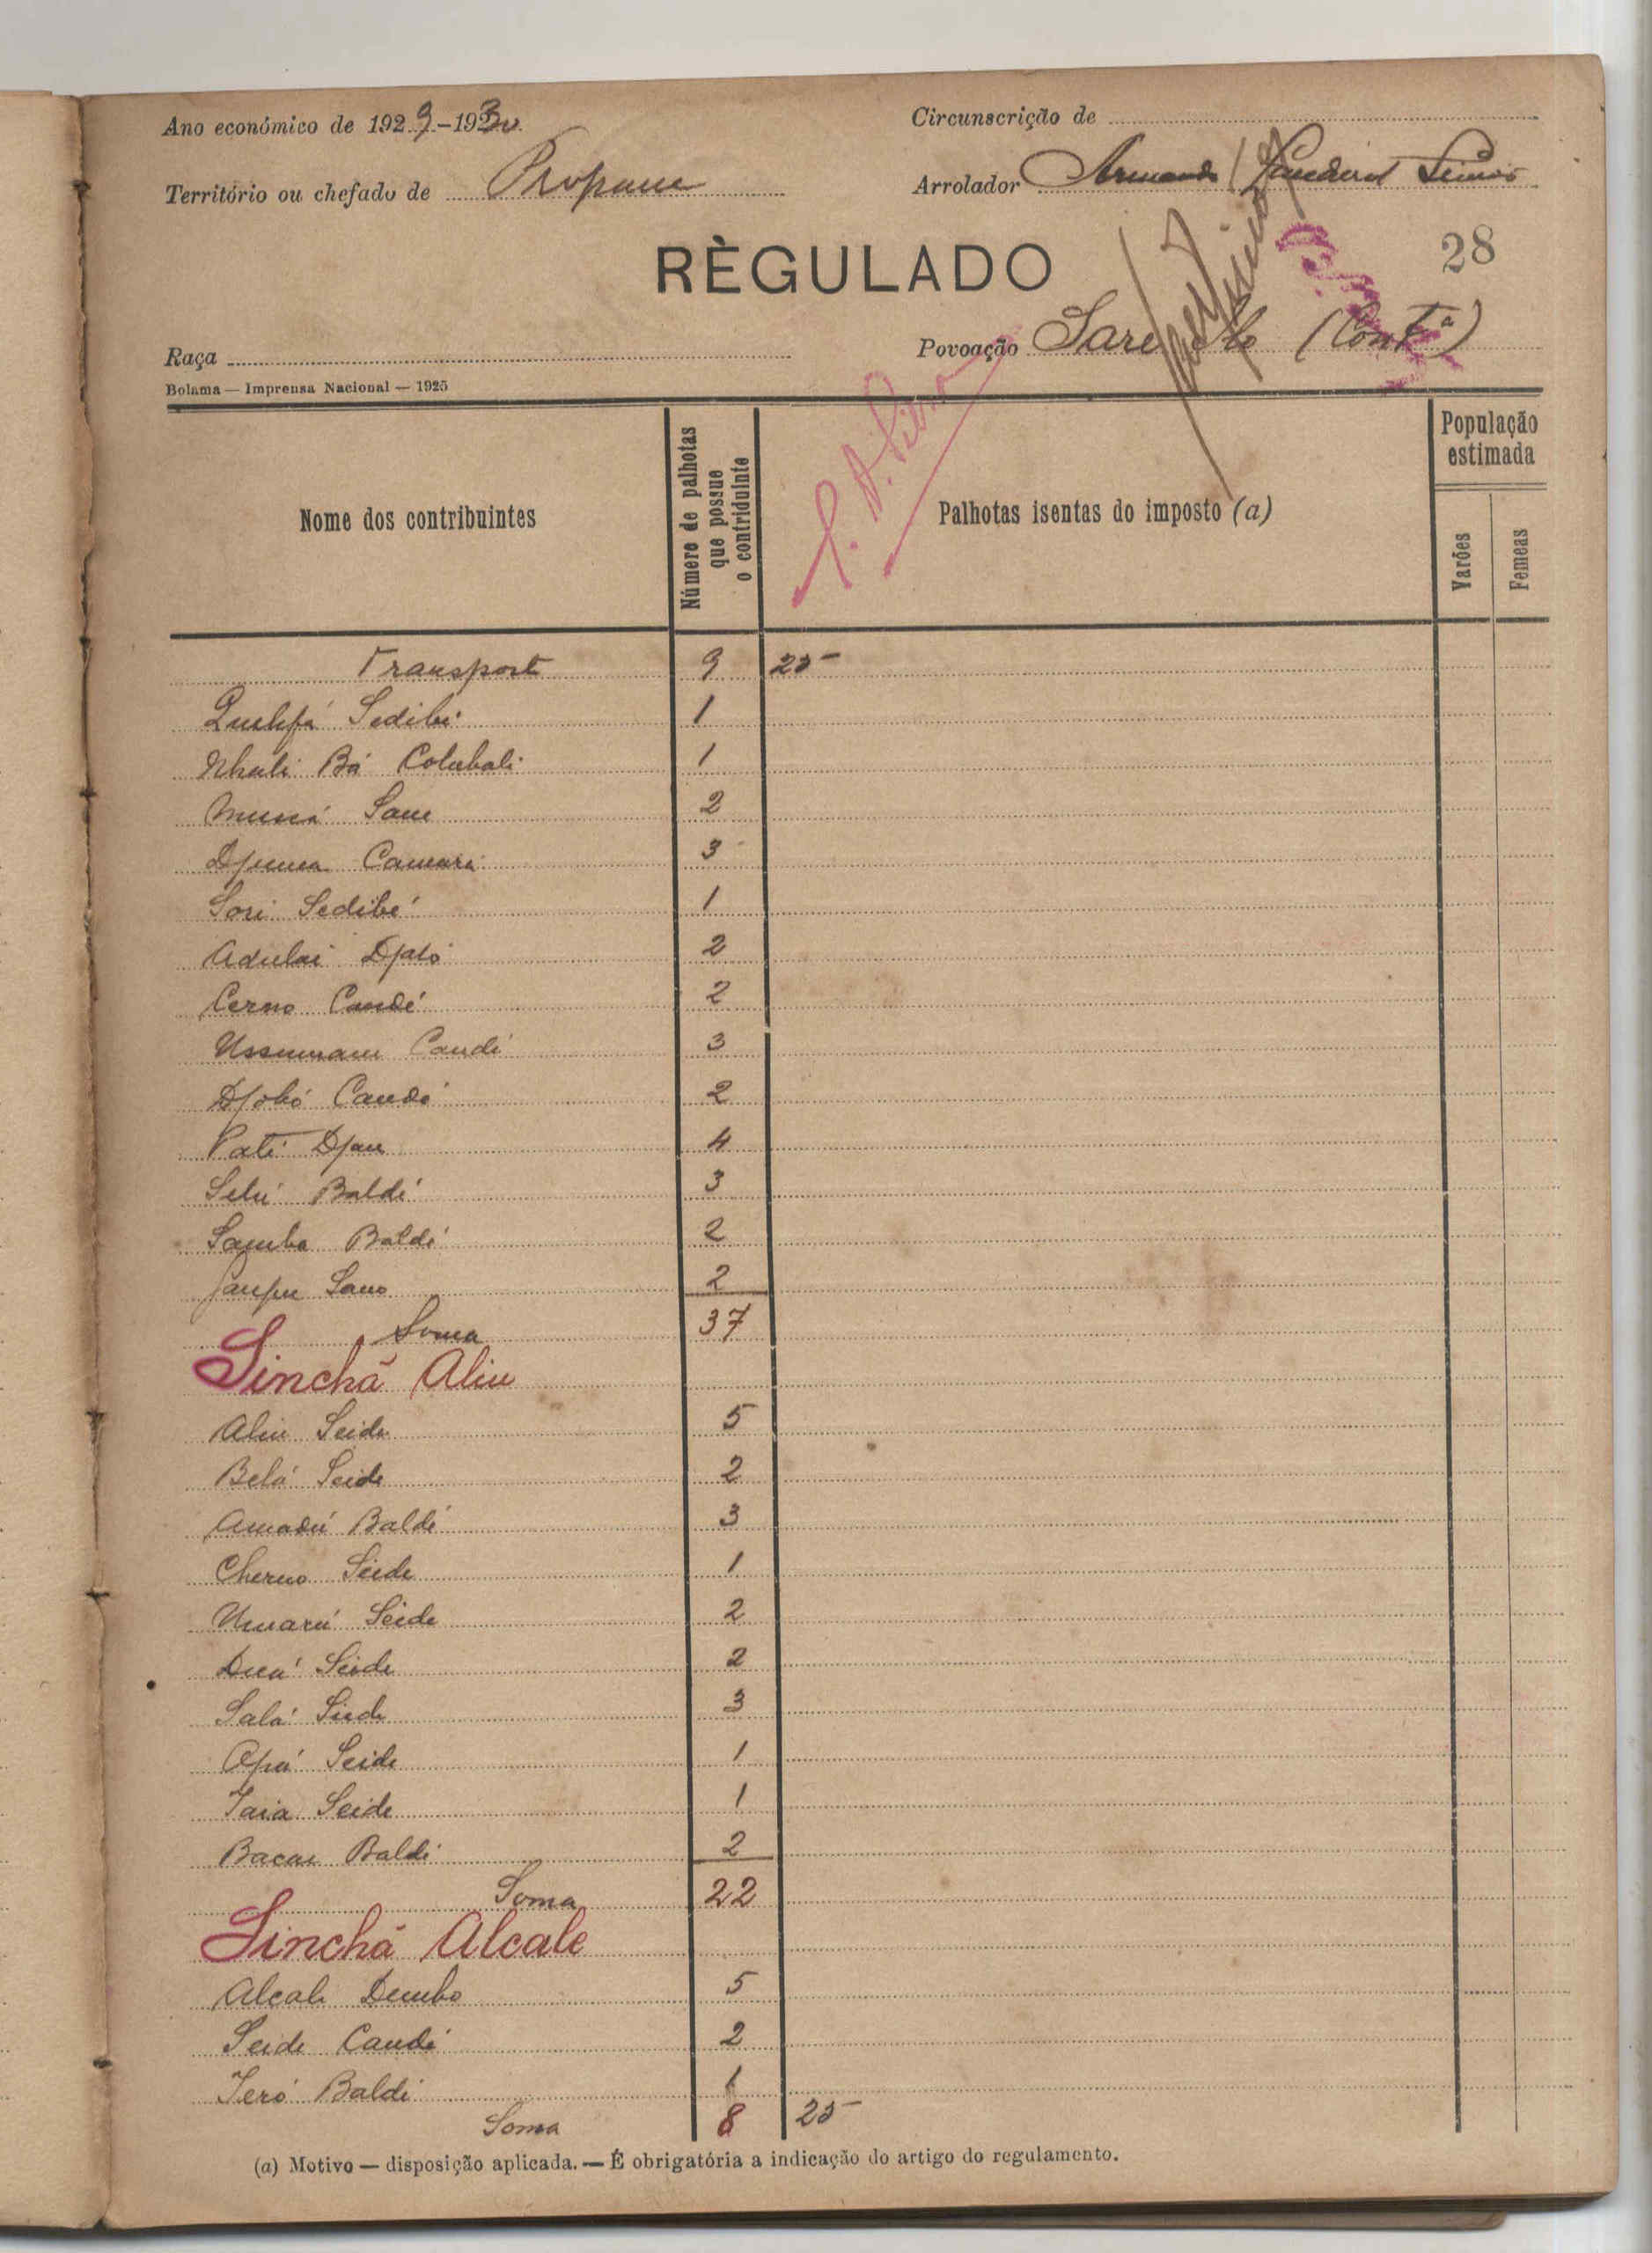 Ano económico de 1929-1930
Circunscrição de
Território ou chefado de Propane
Arrolador Armando
28
RÈGULADO
Raça
Povoação Sare (Contª)
Bolama — Imprensa Nacional — 1925
Nome dos contribuintes
Número de palhotas
que possue
o contriduinte
Palhotas isentas do imposto (a)
População
estimada
Varões
Femeas
Transport 9 25-
Sedibé 1
Bá Colubali 1
Mussá Sane 2
Camará 3
Sori Sedibé 1
Adulai Djaló 2
Cerno Candé 2
Ussumane Candé 3
Djobó Candé 2
Pate Djau 4
Baldé 3
Samba Baldé 2
Sano 2
Soma 37
Sinchã Aliu
Aliu Seide 5
Belá Seide 2
Amadú Baldé 3
Cherno Seide 1
Umarú Seide 2
Seide 2
Salá Seide 3
Seide 1
Iaia Seide 1
Bacar Baldé 2
Soma 22
Sinchã Alcale
Alcale Dembo 5
Seide Candé 2
Iero Baldé 1
Soma 8 25-
(a) Motivo — disposição aplicada. — É obrigatória a indicação do artigo do regulamento.